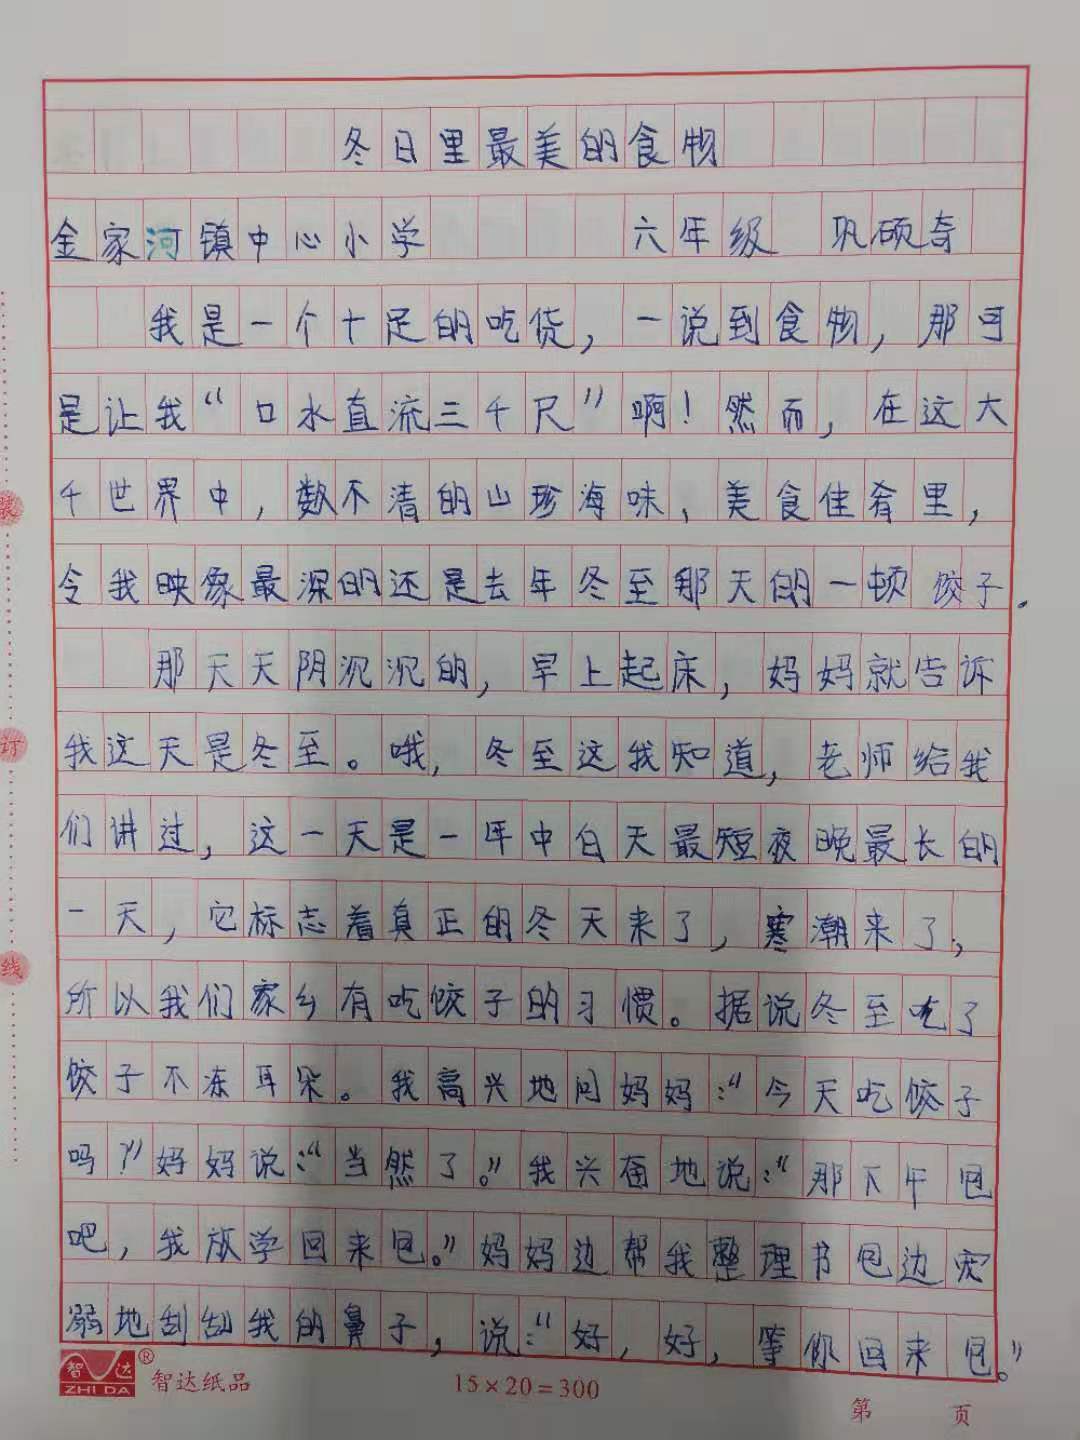 冬日里最美的食物
金家河镇中心小学 六年级 巩硕奇
我是一个十足的吃货，一说到食物，那可
是让我“口水直流三千尺”啊！然而，在这大
千世界中，数不清的山珍海味、美食佳肴里，
令我映象最深的还是去年冬至那天的一顿饺子。
那天天阴沉沉的，早上起床，妈妈就告诉
我这天是冬至。哦，冬至这我知道，老师给我
们讲过，这一天是一年中白天最短夜晚最长的
一天，它标志着真正的冬天来了，寒潮来了，
所以我们家乡有吃饺子的习惯。据说冬至吃了
饺子不冻耳朵。我高兴地问妈妈：“今天吃饺子
吗？”妈妈说：“当然了。”我兴奋地说：“那下午包
吧，我放学回来包。”妈妈边帮我整理书包边宠
溺地刮刮我的鼻子，说：“好，好，等你回来包。”
智达
ZHI DA
®
智达纸品
15×20=300
第 页
装
订
线